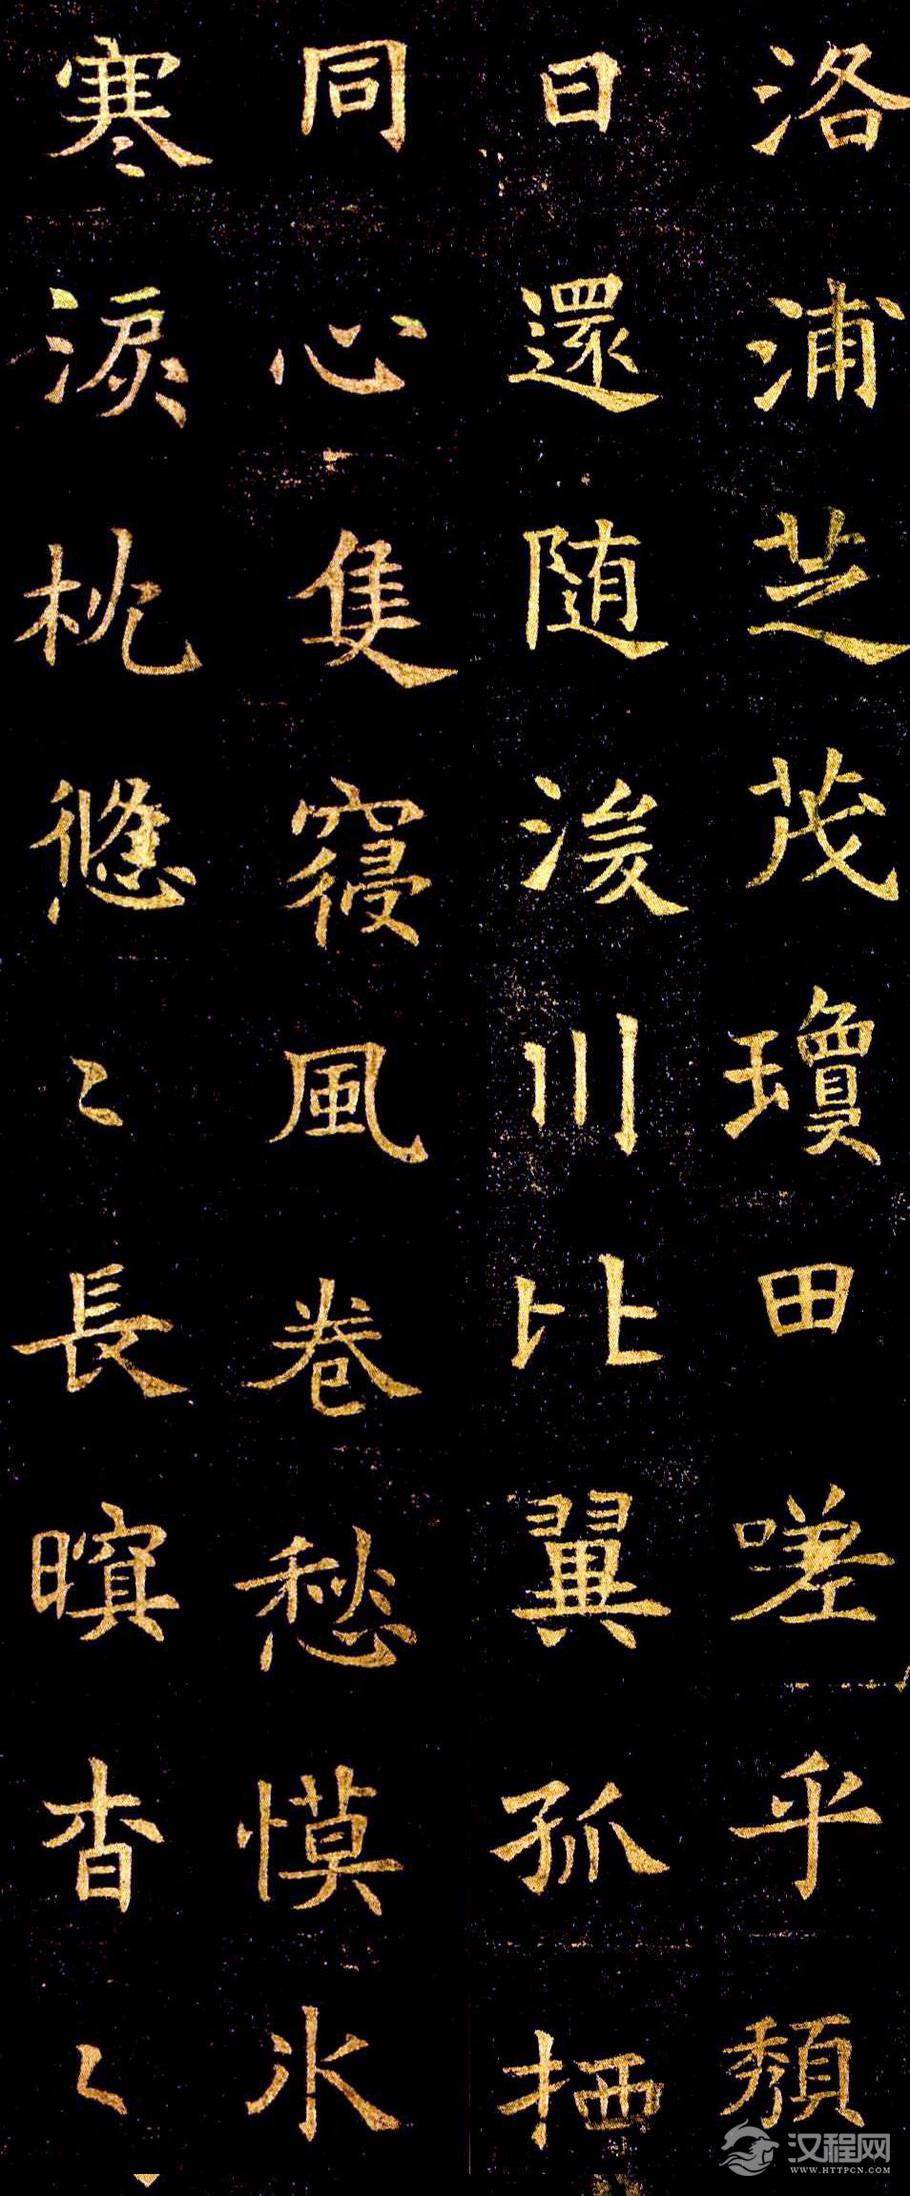 洛浦芝茂瓊田嗟乎頹
日還随浚川比翼孤栖
同心隻寝風卷愁慔氷
寒淚枕悠〻長瞑杳〻
汉程网
WWW.HTTPCN.COM